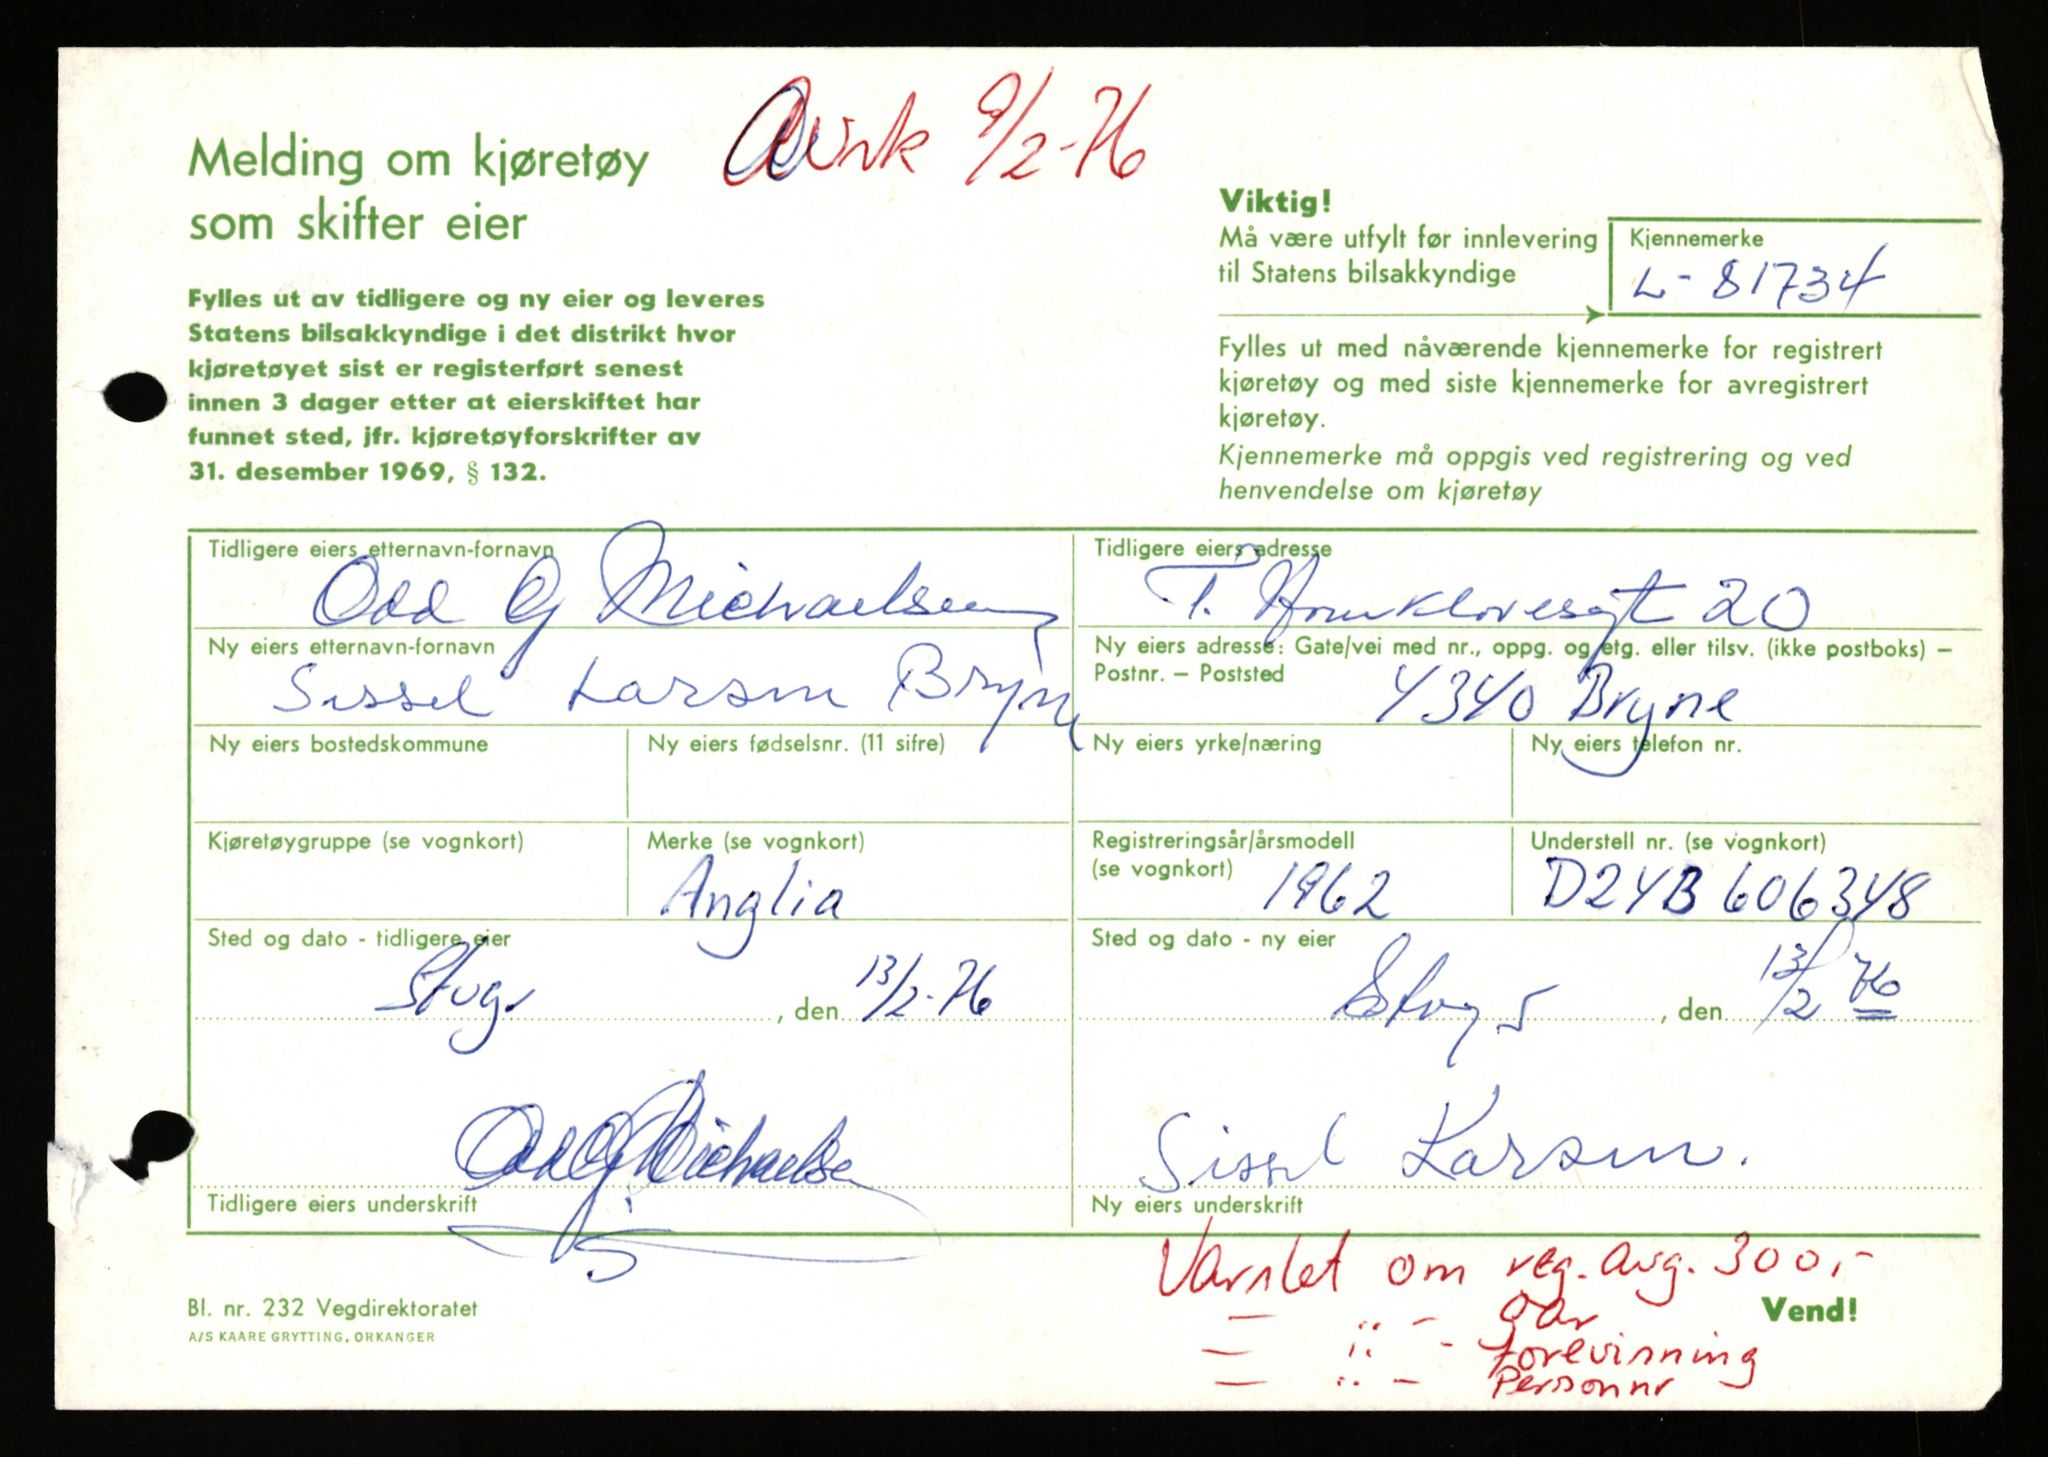 Avink 9/2-76
Melding om kjøretøy
som skifter eier
Fylles ut av tidligere og ny eier og leveres
Statens bilsakkyndige i det distrikt hvor
kjøretøyet sist er registerført senest
innen 3 dager etter at eierskiftet har
funnet sted, jfr. kjøretøyforskrifter av
31. desember 1969, § 132.
Viktig!
Må være utfylt før innlevering
til Statens bilsakkyndige
Kjennemerke
L- 81734
Fylles ut med nåværende kjennemerke for registrert
kjøretøy og med siste kjennemerke for avregistrert
kjøretøy.
Kjennemerke må oppgis ved registrering og ved
henvendelse om kjøretøy
Tidligere eiers etternavn-fornavn
Odd G Michaelsen
Tidligere eiers adresse
T. 20
Ny eiers etternavn-fornavn
Sissel Larsen Bryne
Ny eiers adresse: Gate/vei med nr., oppg. og etg. eller tilsv. (ikke postboks) –
Postnr. – Poststed
4340 Bryne
Ny eiers bostedskommune
Ny eiers fødselsnr. (11 sifre)
Ny eiers yrke/næring
Ny eiers telefon nr.
Kjøretøygruppe (se vognkort)
Merke (se vognkort)
Anglia
Registreringsår/årsmodell
(se vognkort)
1962
Understell nr. (se vognkort)
D24B 606348
Sted og dato - tidligere eier
Stvgr , den 13/2-76
Sted og dato - ny eier
Stvgr , den 13/2 76
Odd G Michaelsen
Tidligere eiers underskrift
Sissel Larsen.
Ny eiers underskrift
Varslet om reg. avg. 300,-
— " - gar
— " - forevisning
— " - Personnr
Bl. nr. 232 Vegdirektoratet
A/S KAARE GRYTTING, ORKANGER
Vend!